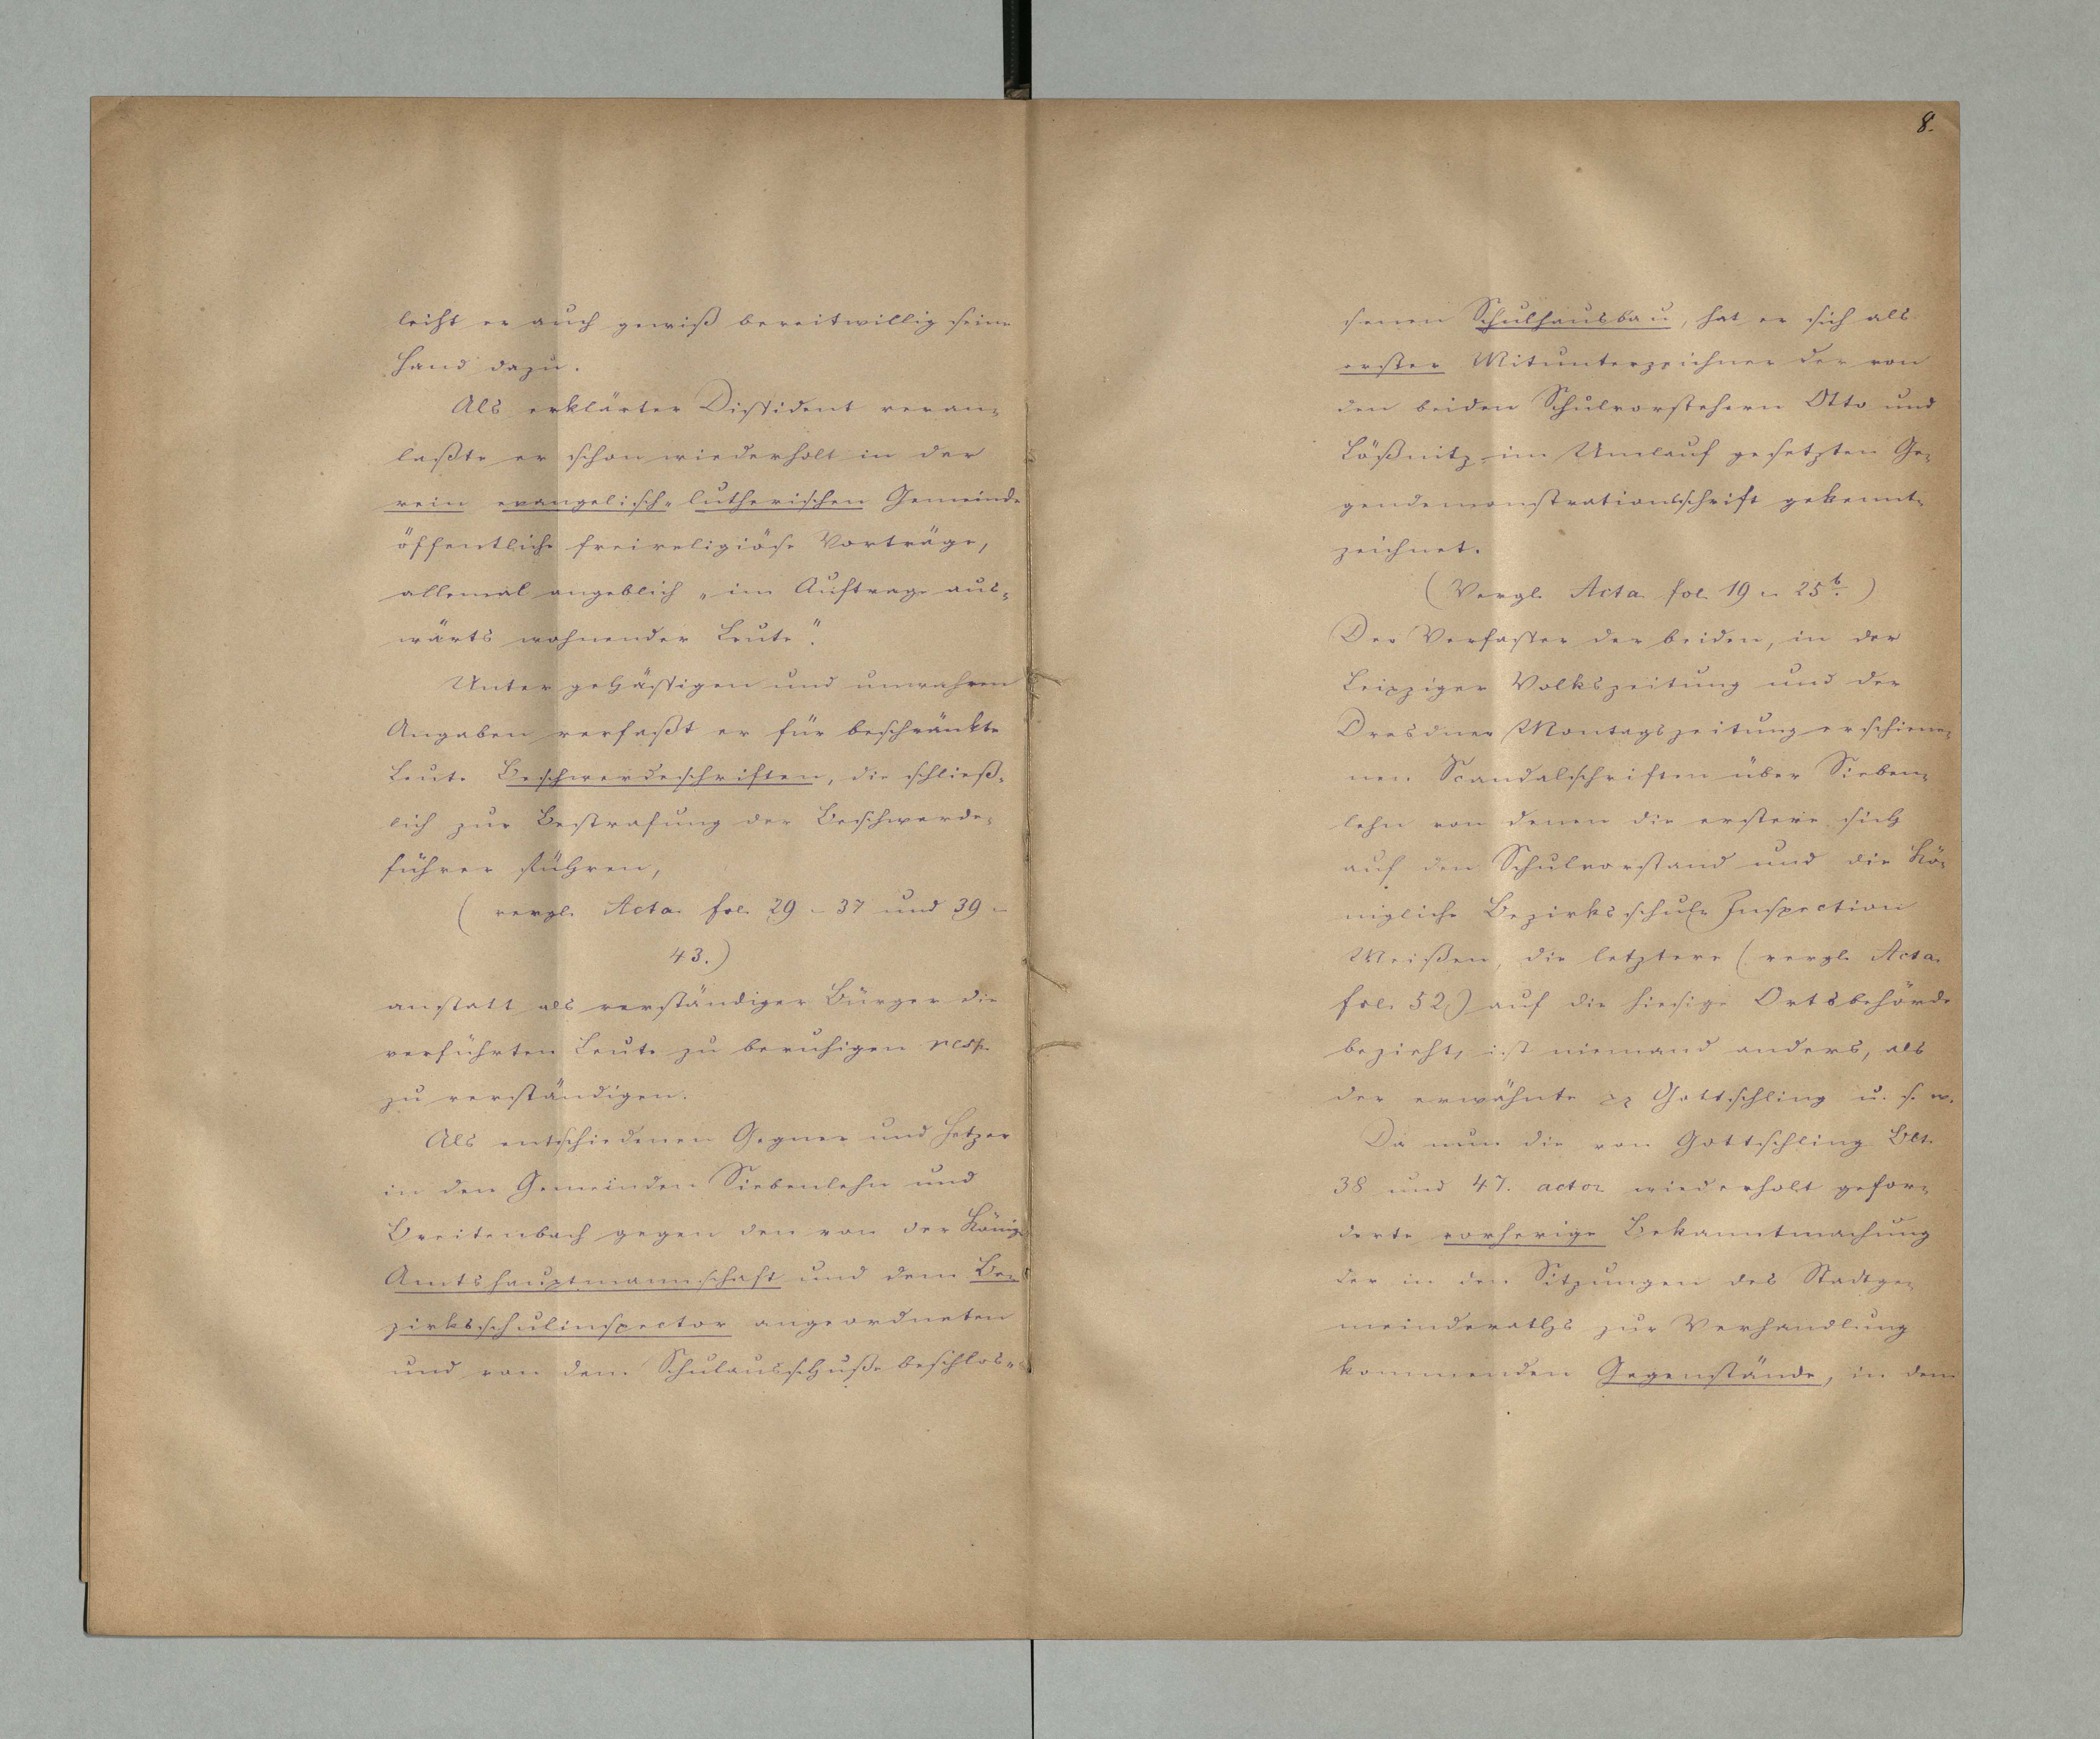 leiht er auch gewiß bereitwillig seine
Hand dazu.
Als erklärter Dissident veran-
laßte er schon wiederholt in der
rein evangelisch-lutherischen Gemeinde
öffentliche freireligiöse Vorträge,
allemal angeblich „im Auftrage aus-
wärts wohnender Leute".
Unter gehässigen und unwahren
Angaben verfaßt er für beschränkte
Leute Beschwerdeschriften, die schließ-
lich zur Bestrafung der Beschwerde-
führer führen,
(vergl. Acta. fol. 29 - 37 und 39 -
43.)
anstatt als verständiger Bürger die
verführten Leute zu beruhigen resp.
zu verständigen.
Als entschiedenen Gegner und Hetzer
in den Gemeinden Siebenlehn und
Breitenbach gegen den von der Königl.
Amtshauptmannschaft und dem Be-
zirksschulinspector angeordneten
und von dem Schulausschuße beschlos-
8.
senen Schulhausbau, hat er sich als
erster Mitunterzeichner der von
den beiden Schulvorstehern Otto und
Lößnitz im Umlauf gesetzten Ge-
gendemonstrationsschrift gekennt-
zeichnet.
(Vergl. Acta. fol. 19 - 25b.)
Der Verfasser der beiden, in der
Leipziger Volkszeitung und der
Dresdner Montagszeitung erschiene-
nen Scandalschriften über Sieben-
lehn von denen die erstere sich
auf den Schulvorstand und die Kö-
nigliche Bezirksschule Inspection
Meißen, die letztere (vergl. Acta.
fol. 52) auf die hiesige Ortsbehörde
bezieht, ist niemand anders, als
der erwähnte pp Gottschling u. s. w.
Da nun die von Gottschling Blt.
38 und 47. actor wiederholt gefor-
derte vorherige Bekanntmachung
der in den Sitzungen des Stadtge-
meinderaths zur Verhandlung
kommenden Gegenstände, in dem